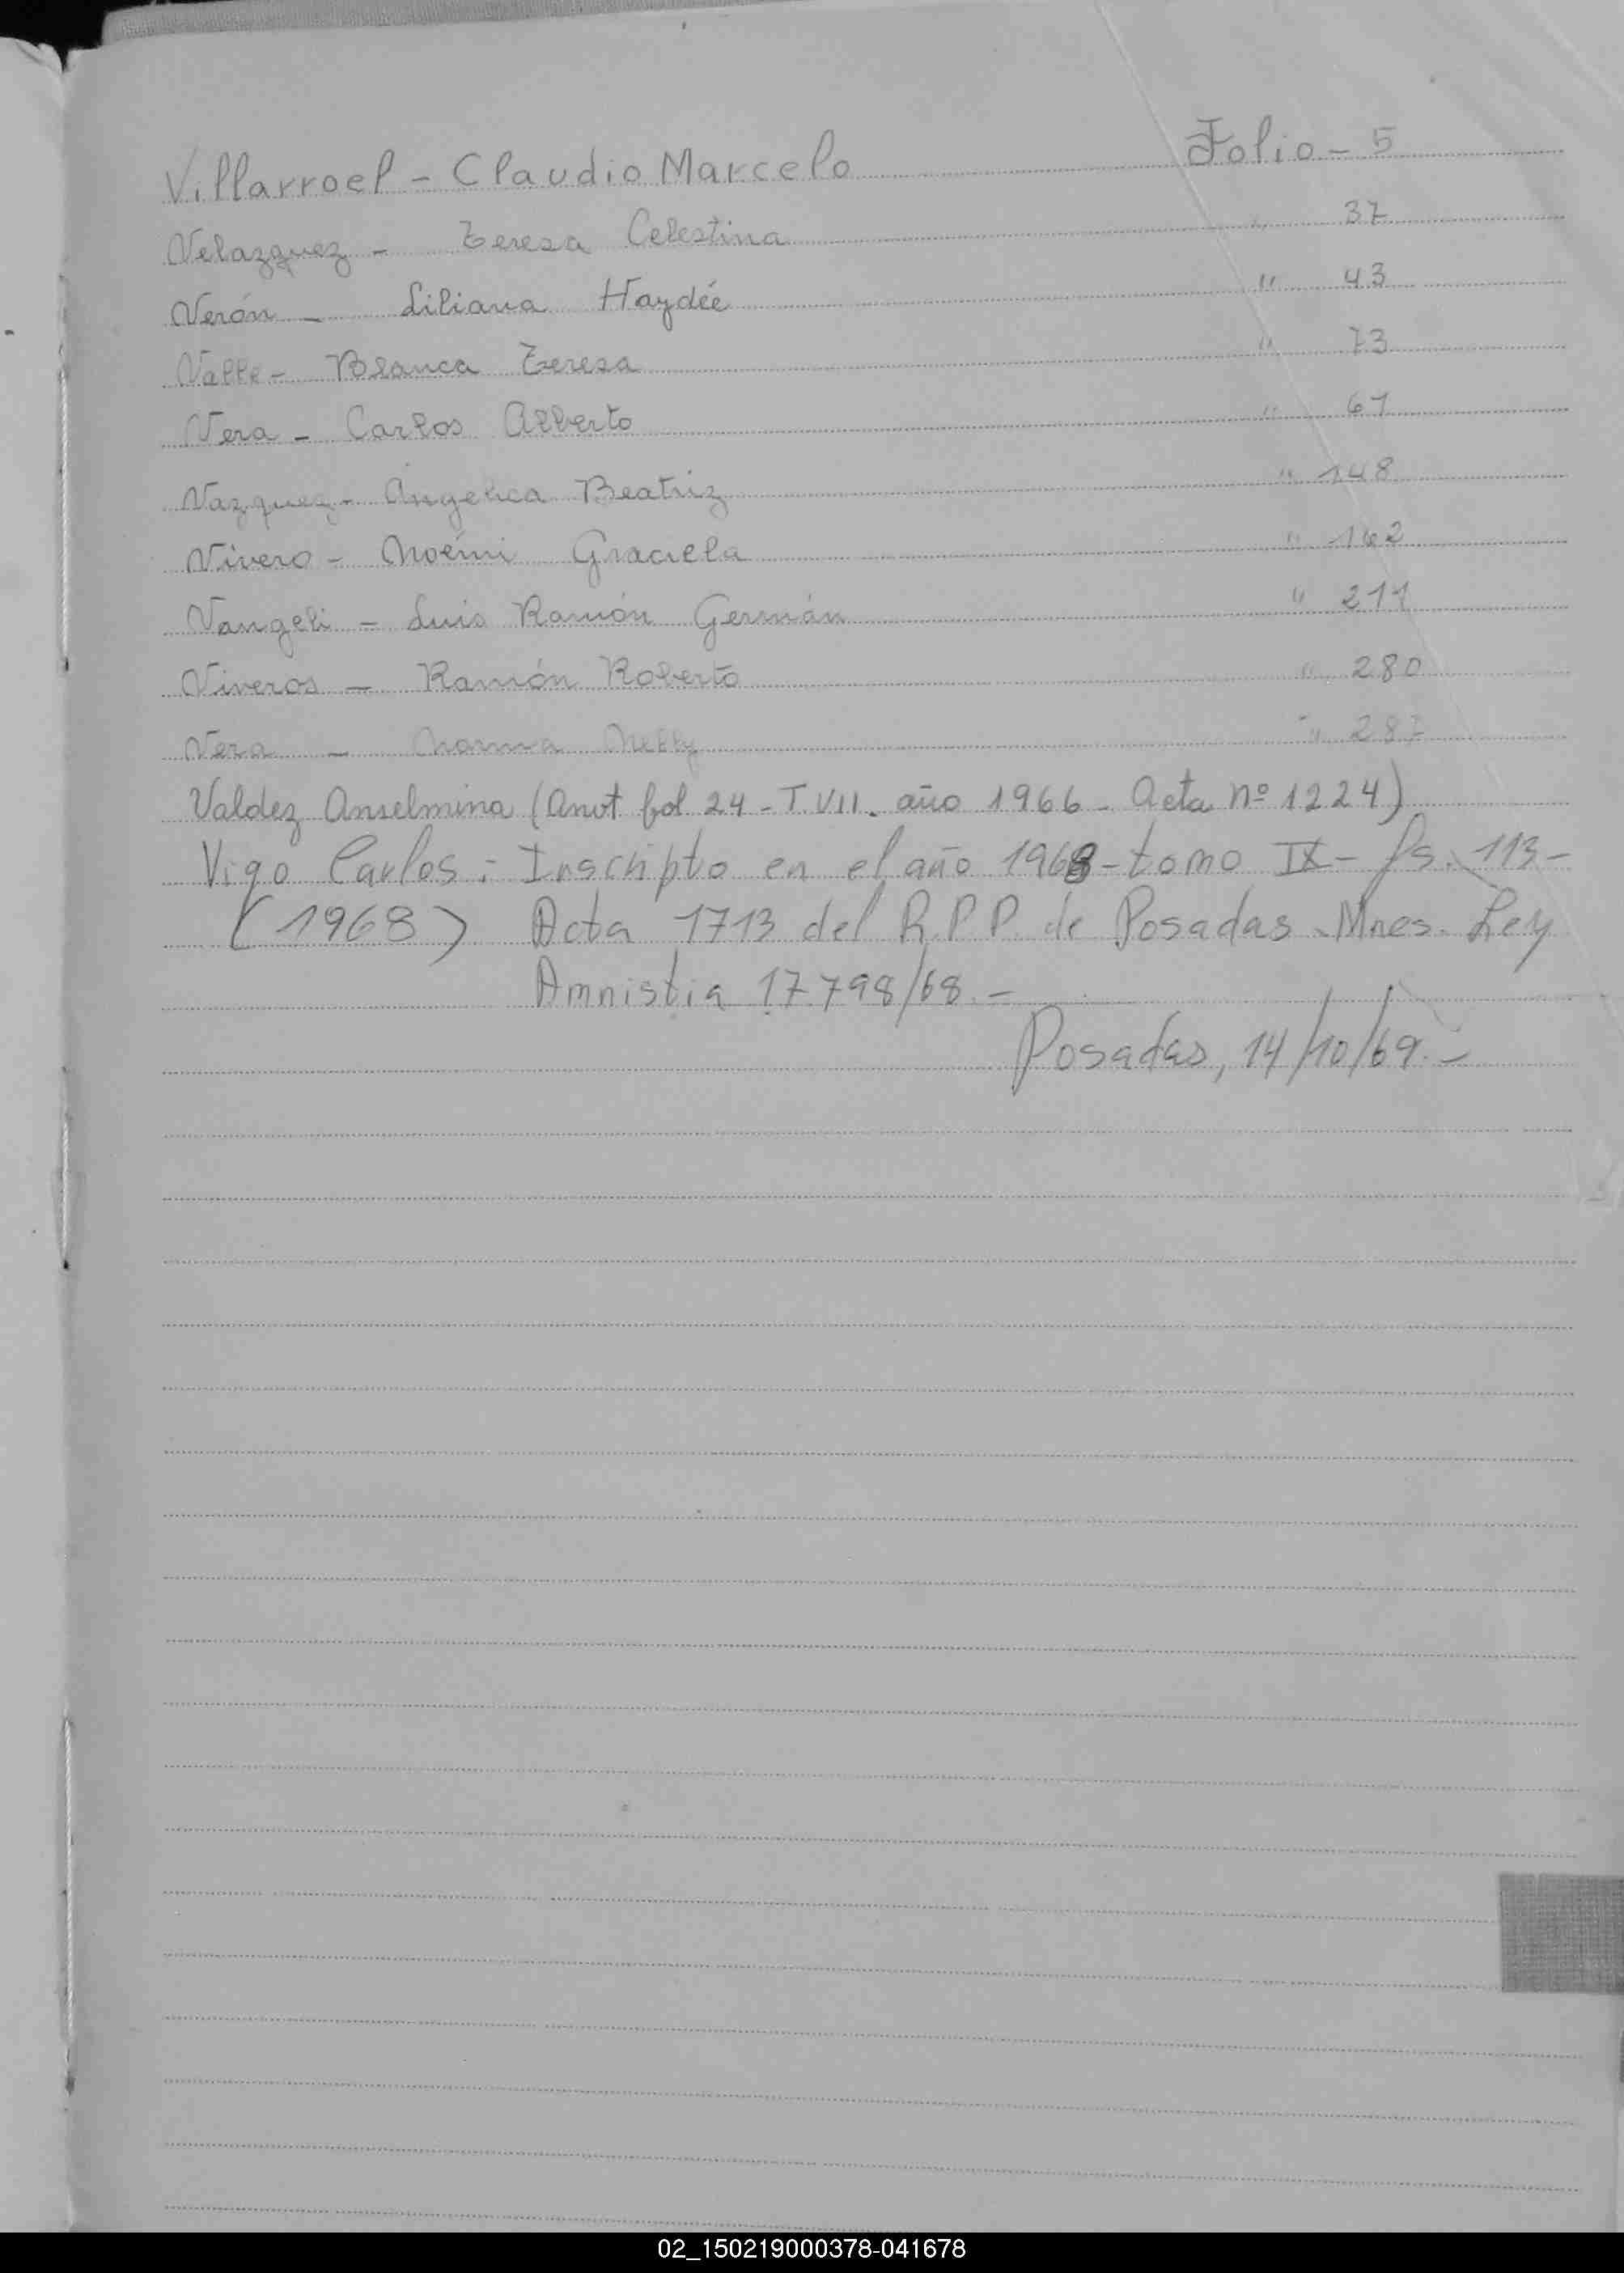 Villarroel - Claudio Marcelo Folio - 5
Velazquez - Teresa Celestina " 37
Verón - Liliana Haydée " 43
Valle - Blanca Teresa " 73
Vera - Carlos Alberto " 61
Vazquez - Angelica Beatriz " 148
Vivero - Noemi Graciela " 162
Vangeli - Luis Ramón Germán " 211
Viveros - Ramón Roberto " 280
Vera - Norma Nelly " 287
Valdez Anselmina (Anot fol 24 - T. VII. año 1966 - Acta nº 1224)
Vigo Carlos: Inscripto en el año 1968 - tomo IX - fs. 113 -
(1968) Acta 1713 del R.P.P. de Posadas - Mnes. Ley
Amnistia 17.798/68. -
Posadas, 14/10/69. -
02_150219000378-041678